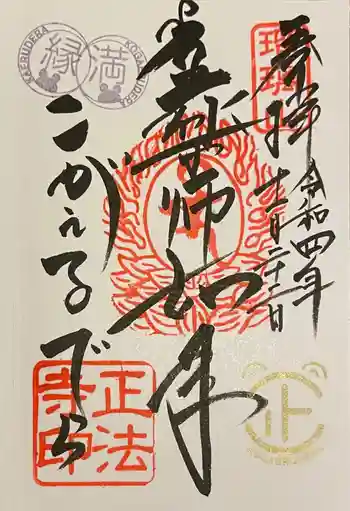 奉拝 令和四年
十一月二十二日
瑠璃山
薬師如来
こがえるでら
縁 満
KAERUDERA KOGAERUDERA
正法寺印
正